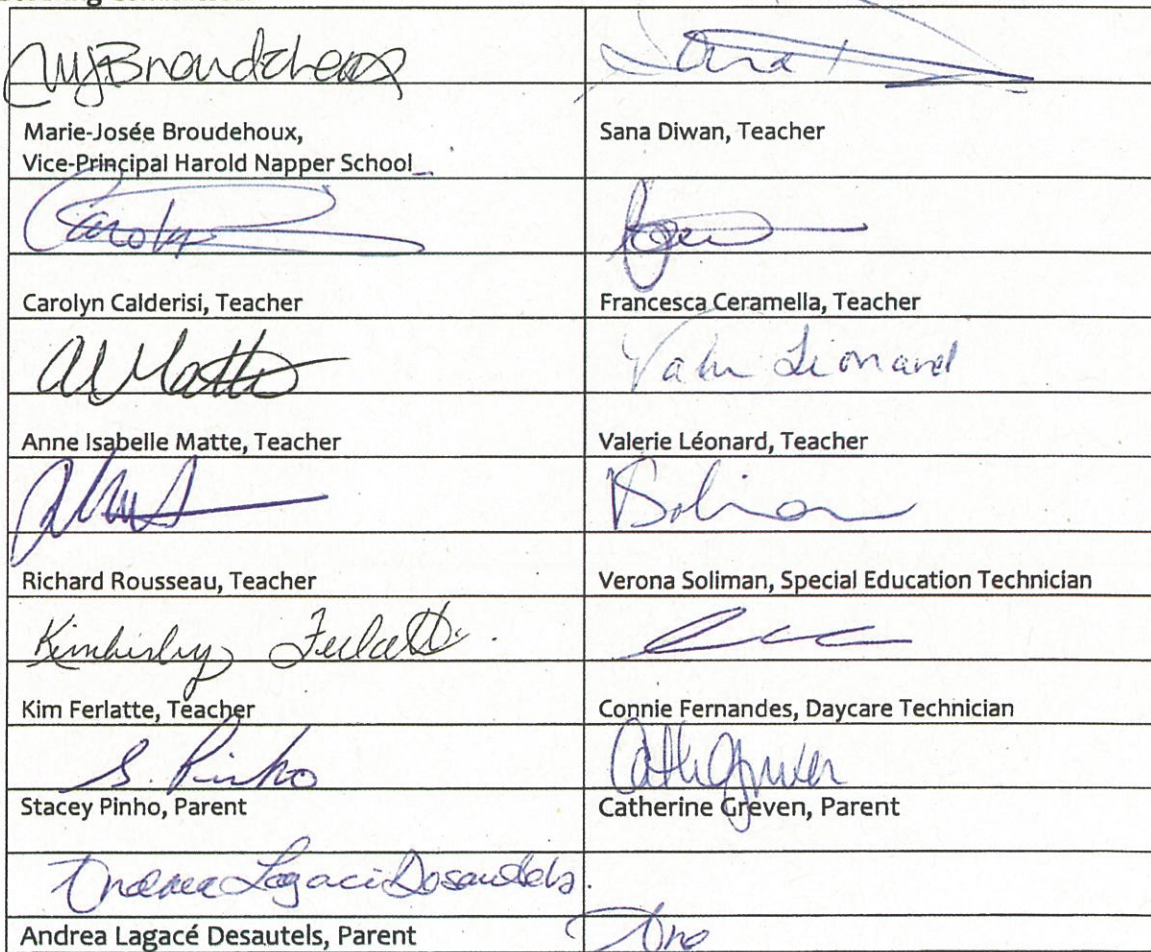 MJBroudehoux
Sana
Marie-Josée Broudehoux,
Vice-Principal Harold Napper School
Sana Diwan, Teacher
Carolyn
Carolyn Calderisi, Teacher
Francesca Ceramella, Teacher
AI Matte
Léonard
Anne Isabelle Matte, Teacher
Valerie Léonard, Teacher
Soliman
Richard Rousseau, Teacher
Verona Soliman, Special Education Technician
Kimberley Ferlatte
Kim Ferlatte, Teacher
Connie Fernandes, Daycare Technician
S. Pinho
Stacey Pinho, Parent
Catherine Greven, Parent
Andrea Lagacé Desautels
Andrea Lagacé Desautels, Parent